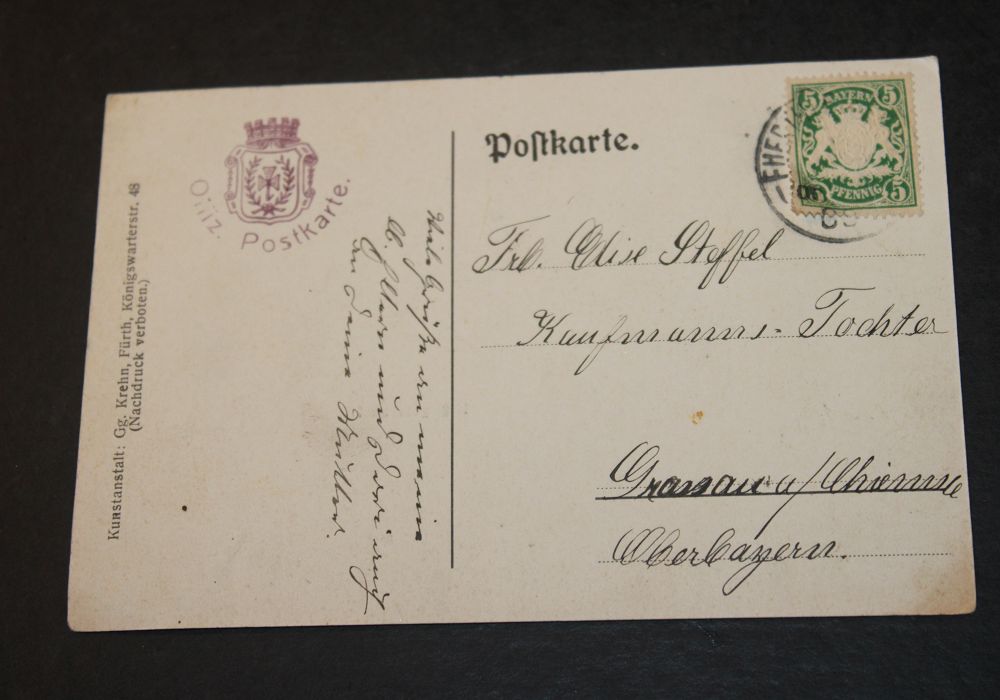 Kunstanstalt: Gg. Krehn, Fürth, Königswarterstr. 48
(Nachdruck verboten.)
Offiz. Postkarte.
Viele Grüße an meine
lb. Eltern und Dori und
an Deine Mutter.
Postkarte.
BAYERN
5 5
PFENNIG
5 5
Frl. Elise Steffel
Kaufmanns-Tochter
Grassau a/Chiemsee
Oberbayern.